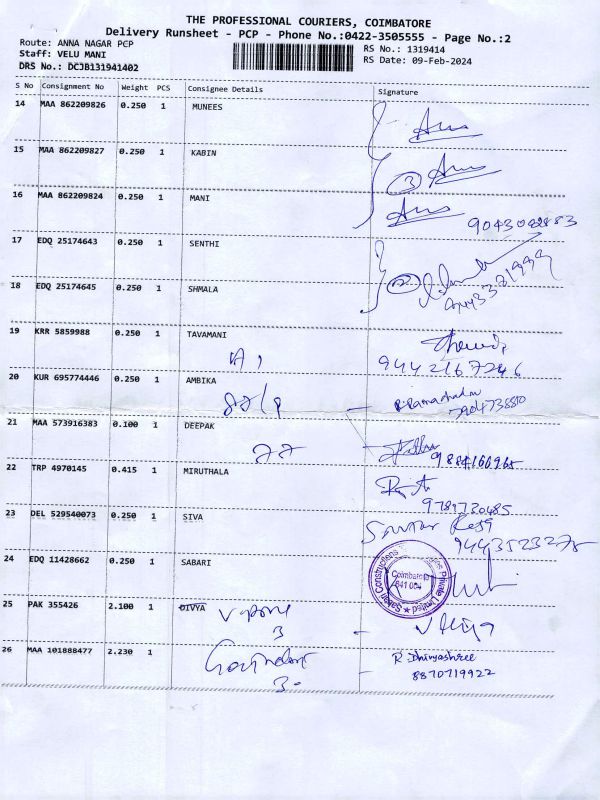 THE PROFESSIONAL COURIERS, COIMBATORE
Delivery Runsheet - PCP - Phone No.:0422-3505555 - Page No.:2
Route: ANNA NAGAR PCP
Staff: VELU MANI
DRS No.: DCJB131941402
RS No.: 1319414
RS Date: 09-Feb-2024
S No Consignment No Weight PCS Consignee Details Signature
14 MAA 862209826 0.250 1 MUNEES
15 MAA 862209827 0.250 1 KABIN
3
16 MAA 862209824 0.250 1 MANI
17 EDQ 25174643 0.250 1 SENTHI
18 EDQ 25174645 0.250 1 SHMALA
2
19 KRR 5859988 0.250 1 TAVAMANI
9442167246
20 KUR 695774446 0.250 1 AMBIKA
21 MAA 573916383 0.100 1 DEEPAK
22 TRP 4970145 0.415 1 MIRUTHALA
9781720485
23 DEL 529540073 0.250 1 SIVA
9443523275
24 EDQ 11428662 0.250 1 SABARI
Coimbatore
641 004
25 PAK 355426 2.100 1 DIVYA
3
26 MAA 101888477 2.230 1
R. Dhivyashree
8870719922
3